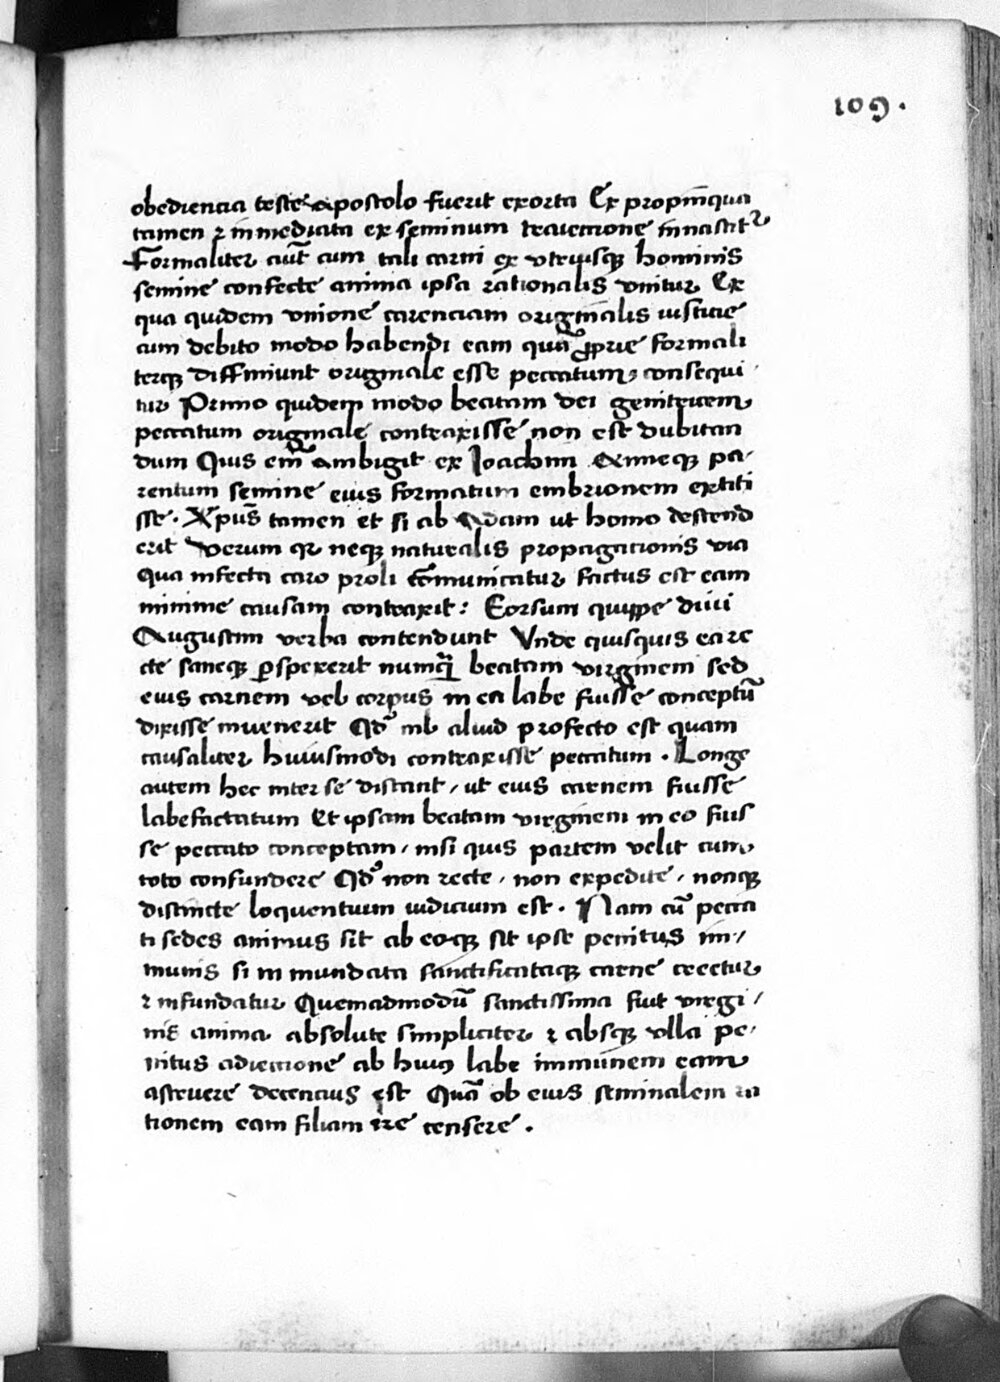 109.
obediencia teste apostolo fuerit exorta Ex propīnqua
tamen ⁊ inmediata ex seminum traiectione innascit᷑
Formaliter aut̄ cum tali carni ex vtriusqꝫ hominis
semine confecte anima ipsa rationalis vnitur Ex
qua quidem vnione carenciam originalis iusticie
cum debito modo habendi eam quā ꝓprie formali
terqꝫ diffiniunt originale esse peccatum consequi
tur Primo quidem modo beatam dei genitricem
peccatum originale contraxisse non est dubitan
dum Quis em̄ ambigit ex Joachim Anneqꝫ pa-
rentum semine eius formatum embrionem extiti
sse. Xpūs tamen et si ab Adam ut homo descend
erit Verum qꝛ neqꝫ naturalis propagationis via
qua infecta caro proli cōmunicatur factus est eam
minime causam contraxit: Eorsum quippe diui
Augustini verba contendunt Vnde quisquis ea re
cte saneqꝫ ꝑspexerit numq̄ beatam virginem sed
eius carnem vel corpus in ea labe fuisse conceptū
dixisse inuenerit Qd̓ nil aliud profecto est quam
causaliter huiusmodi contraxisse peccatum. Longe
autem hec inter se distant / ut eius carnem fuisse
labefactatum Et ipsam beatam virginem in eo fuis
se peccato conceptam / nisi quis partem velit cum
toto confundere Qd̓ non recte / non expedite / nonqꝫ
distincte loquentium iudicium est. Nam cū pecca
ti sedes animus sit ab eoqꝫ sit ipse penitus im/
munis si in mundata sanctificataqꝫ carne creetur
⁊ infundatur Quemadmodū sanctissima fuit virgi /
nis anima absolute simpliciter ⁊ absqꝫ vlla pe-
nitus adiectione ab huiꝰ labe immunem eam
astruere decencius est Quā ob eius seminalem ra
tionem eam filiam ire censere.